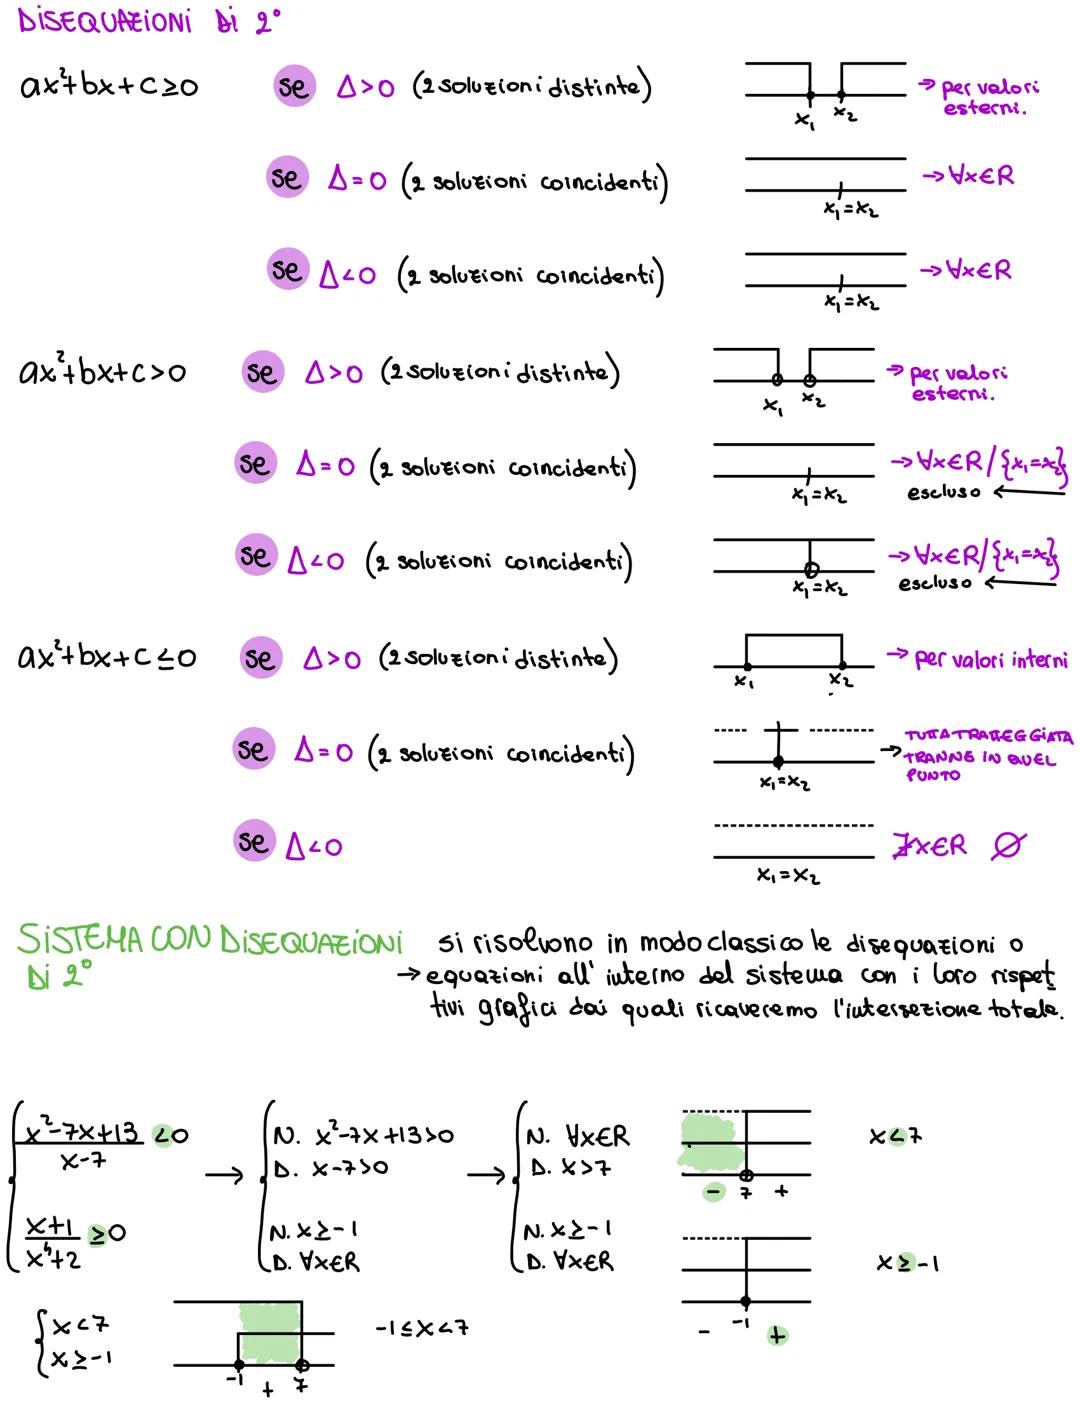 DISEQUAZIONI DI 2°
ax²+bx+c≥0 se Δ>0 (2 soluzioni distinte) x₁ x₂ → per valori esterni.
se Δ=0 (2 soluzioni coincidenti) x₁=x₂ → ∀x∈R
se Δ<0 (2 soluzioni coincidenti) x₁=x₂ → ∀x∈R
ax²+bx+c>0 se Δ>0 (2 soluzioni distinte) x₁ x₂ → per valori esterni.
se Δ=0 (2 soluzioni coincidenti) x₁=x₂ → ∀x∈R/{x₁=x₂}
escluso ←
se Δ<0 (2 soluzioni coincidenti) x₁=x₂ → ∀x∈R/{x₁=x₂}
escluso ←
ax²+bx+c≤0 se Δ>0 (2 soluzioni distinte) x₁ x₂ → per valori interni
se Δ=0 (2 soluzioni coincidenti) x₁=x₂ → TUTTA TRATTEGGIATA
TRANNE IN QUEL
PUNTO
se Δ<0 x₁=x₂ ∄x∈R ∅
SISTEMA CON DISEQUAZIONI
DI 2°
si risolvono in modo classico le disequazioni o
→ equazioni all'interno del sistema con i loro rispet
tivi grafici dai quali ricaveremo l'intersezione totale.
x²-7x+13 <0 → N. x²-7x+13>0 → N. ∀x∈R x<7
x-7 D. x-7>0 D. x>7 - 7 +
x+1 ≥0 N. x≥-1 N. x≥-1
x⁴+2 D. ∀x∈R D. ∀x∈R x≥-1
- -1 +
x<7 -1≤x<7
x≥-1
-1 + 7